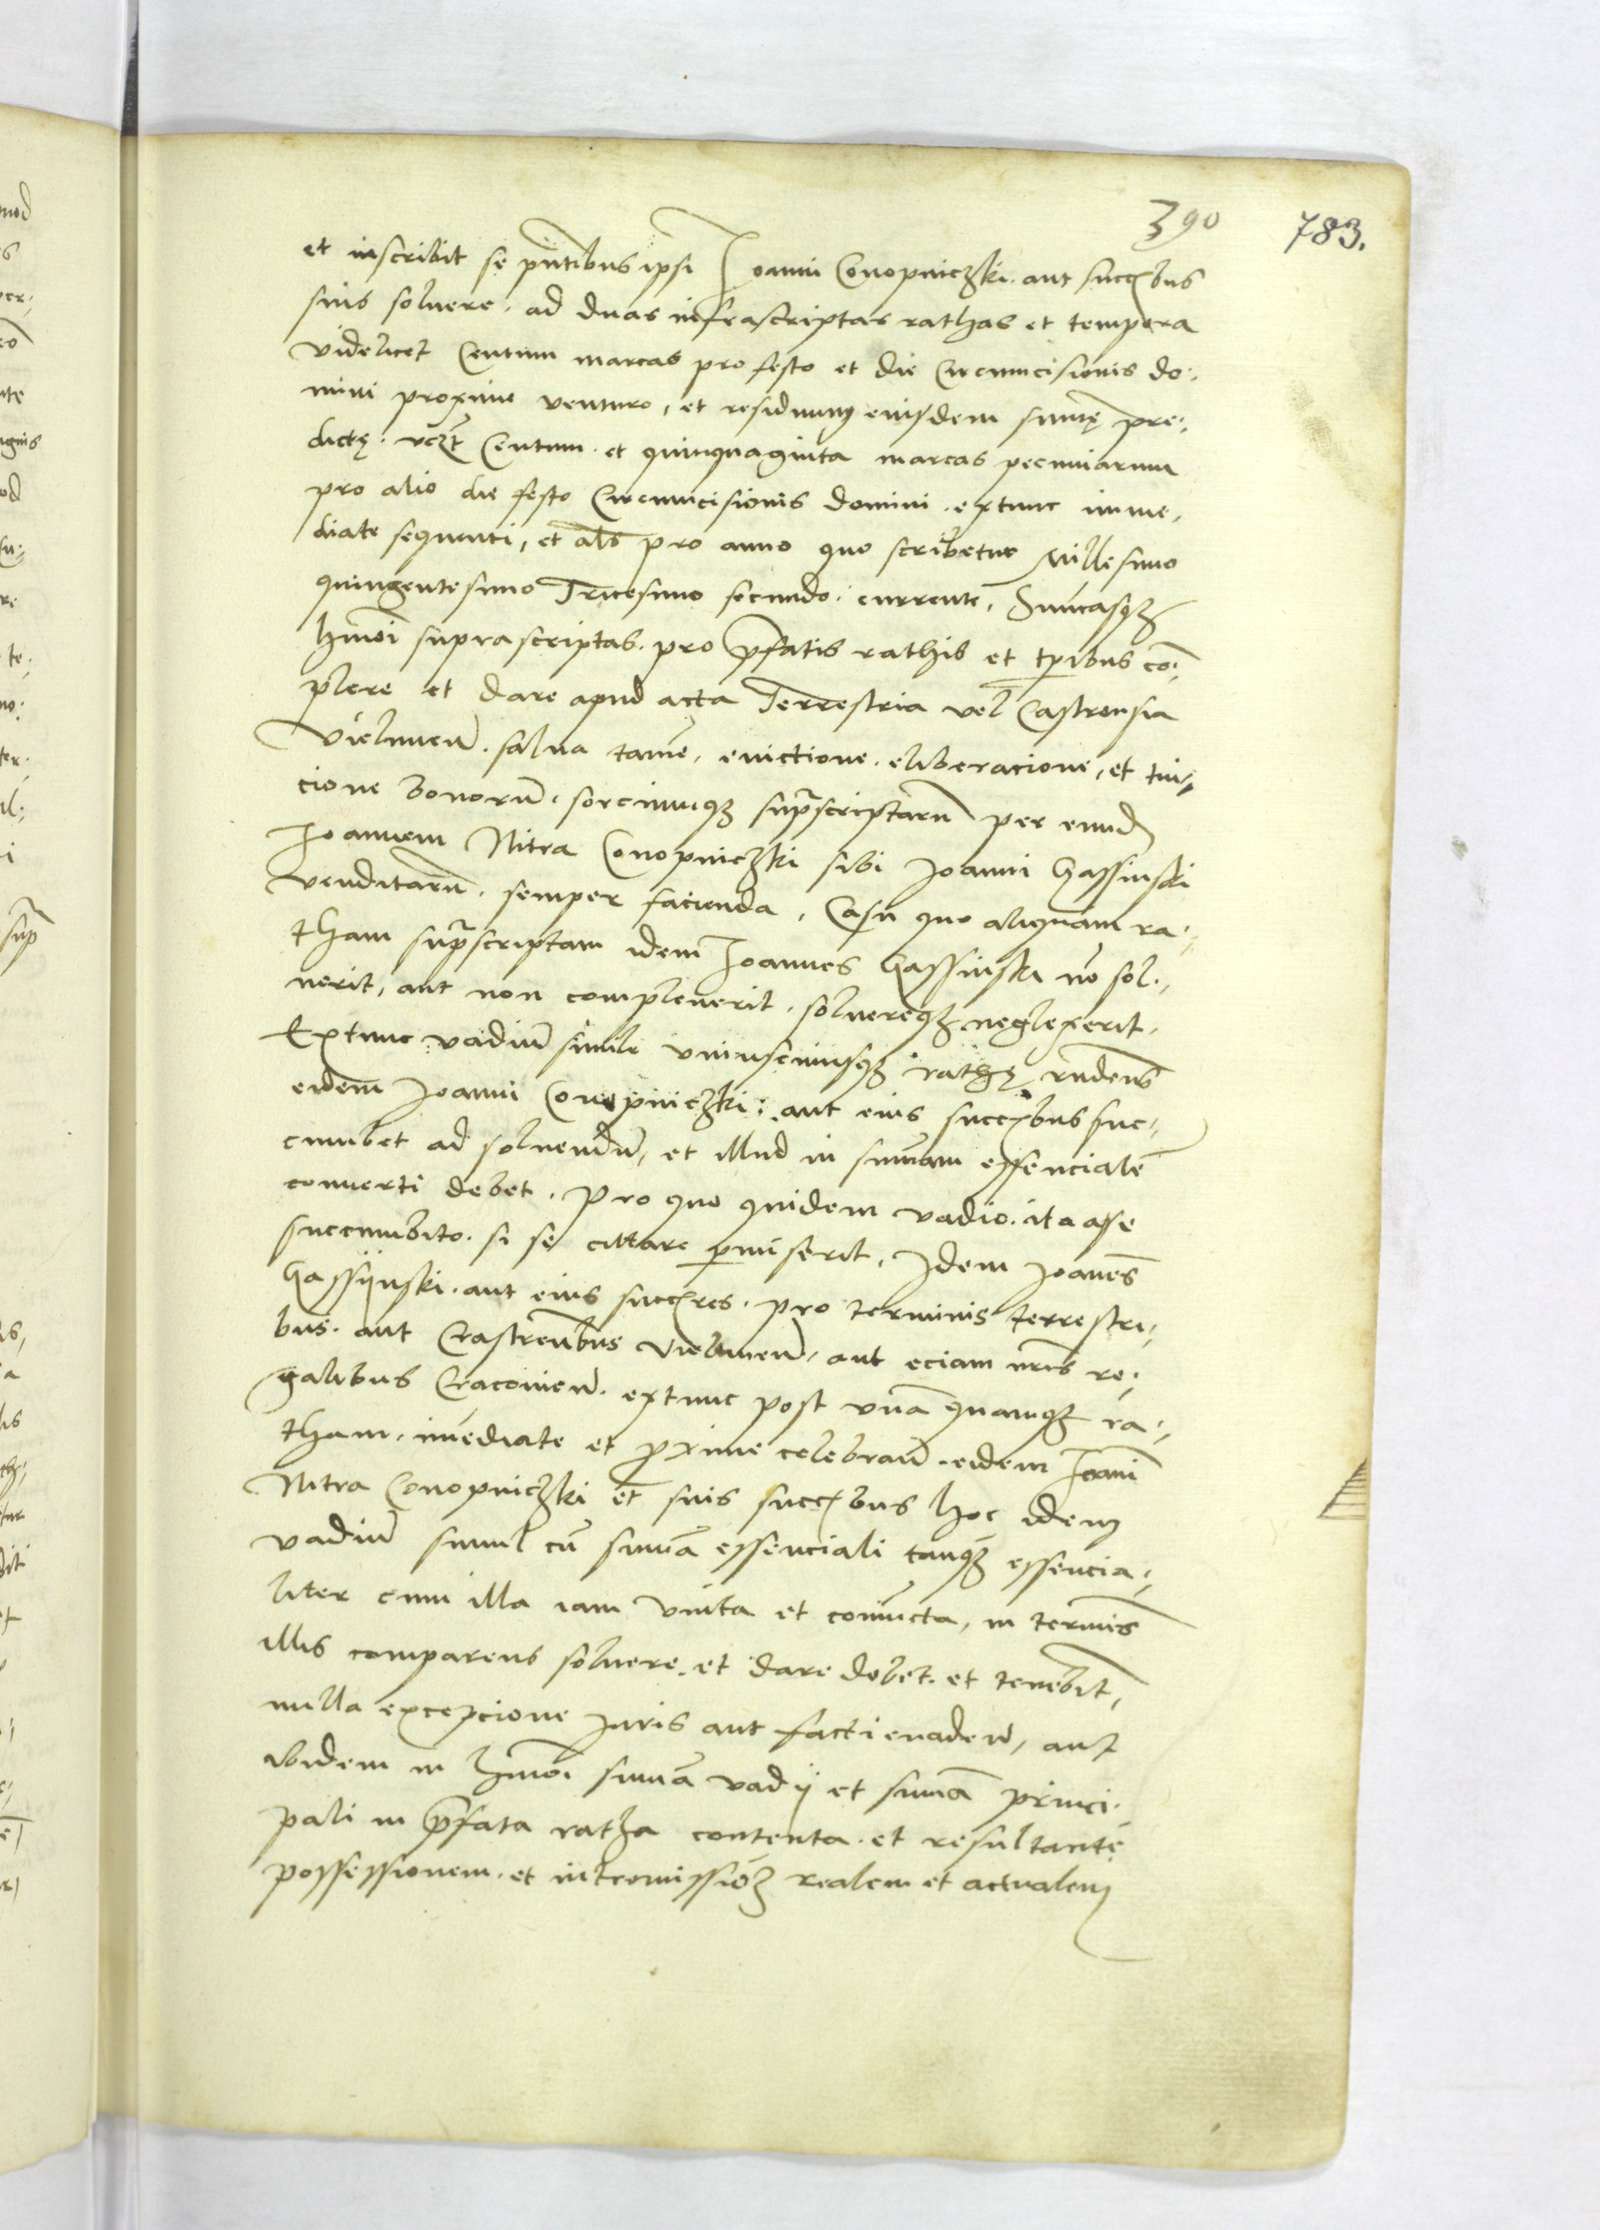 390 783.
et inscribit se pntibus ipsi Joanni Conopniczki. aut succ bus
suis soluere. ad duas infrascriptas rathas et tempora
videlicet Centum marcas pro festo et die Circumcisionis do-
mini proxime venturo, et residuum eiusdem sume pre-
dicte. vczt Centum et quinquaginta marcas pecuniarum
pro alio die festo Circumcisionis domini. extunc imme-
diate sequenti, et als pro anno quo scribetur Millesimo
quingentesimo Tricesimo secundo. currente, Sumasqz
hmoi suprascriptas. pro pfatis rathis et tpribus co-
plere et dare apud acta Terrestria vel Castrensia
Vielunen. salua tame, euictione. eliberacione, et tui-
cione bonoru. sortiumqz suprascriptaru per eund
Joannem Nitra Conopniczki sibi Joanni Gassinski
venditaru. semper facienda, Casu quo aliquam ra-
tham suprascriptam idem Joannes Gassinski no sol-
uerit, aut non compleuerit. soluereqz neglexerit.
Extunc vadium simile vniuscuiusqz rathe rndens
eidem Joanni Conopniczki: aut eius succ bus suc-
cumbet ad soluendu, et illud in sumam essenciale
conuerti debet. Pro quo quidem vadio. ita a se
succumbito. si se cittare pmiserit, Idem Joanes
Gassijnski. aut eius succ res. pro terminis terrestri-
bus. aut Castren bus Vielunen, aut eciam nris re-
galibus Cracouien. extunc post vna quamqz ra-
tham, imediate et pxime celebran. eidem Joani
Nitra Conopniczki et suis succ bus hoc idem
vadiu simul cu suma essenciali tanqz essencia-
liter cum illa iam vnita et coniuncta, in terminis
illis comparens soluere. et dare debet. et tenebit,
nulla excepcione iuris aut facti euaden, aut
ibidem in hmoi suma vadij et suma princi-
pali in pfata ratha contenta. et resultante
possessionem. et intromissioz realem et actualem